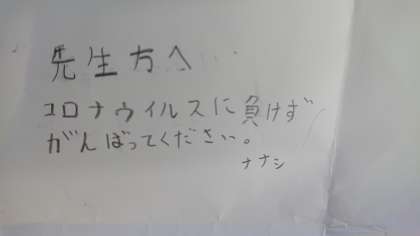 先生方へ
コロナウイルスに負けず
がんばってください。
ナナシ